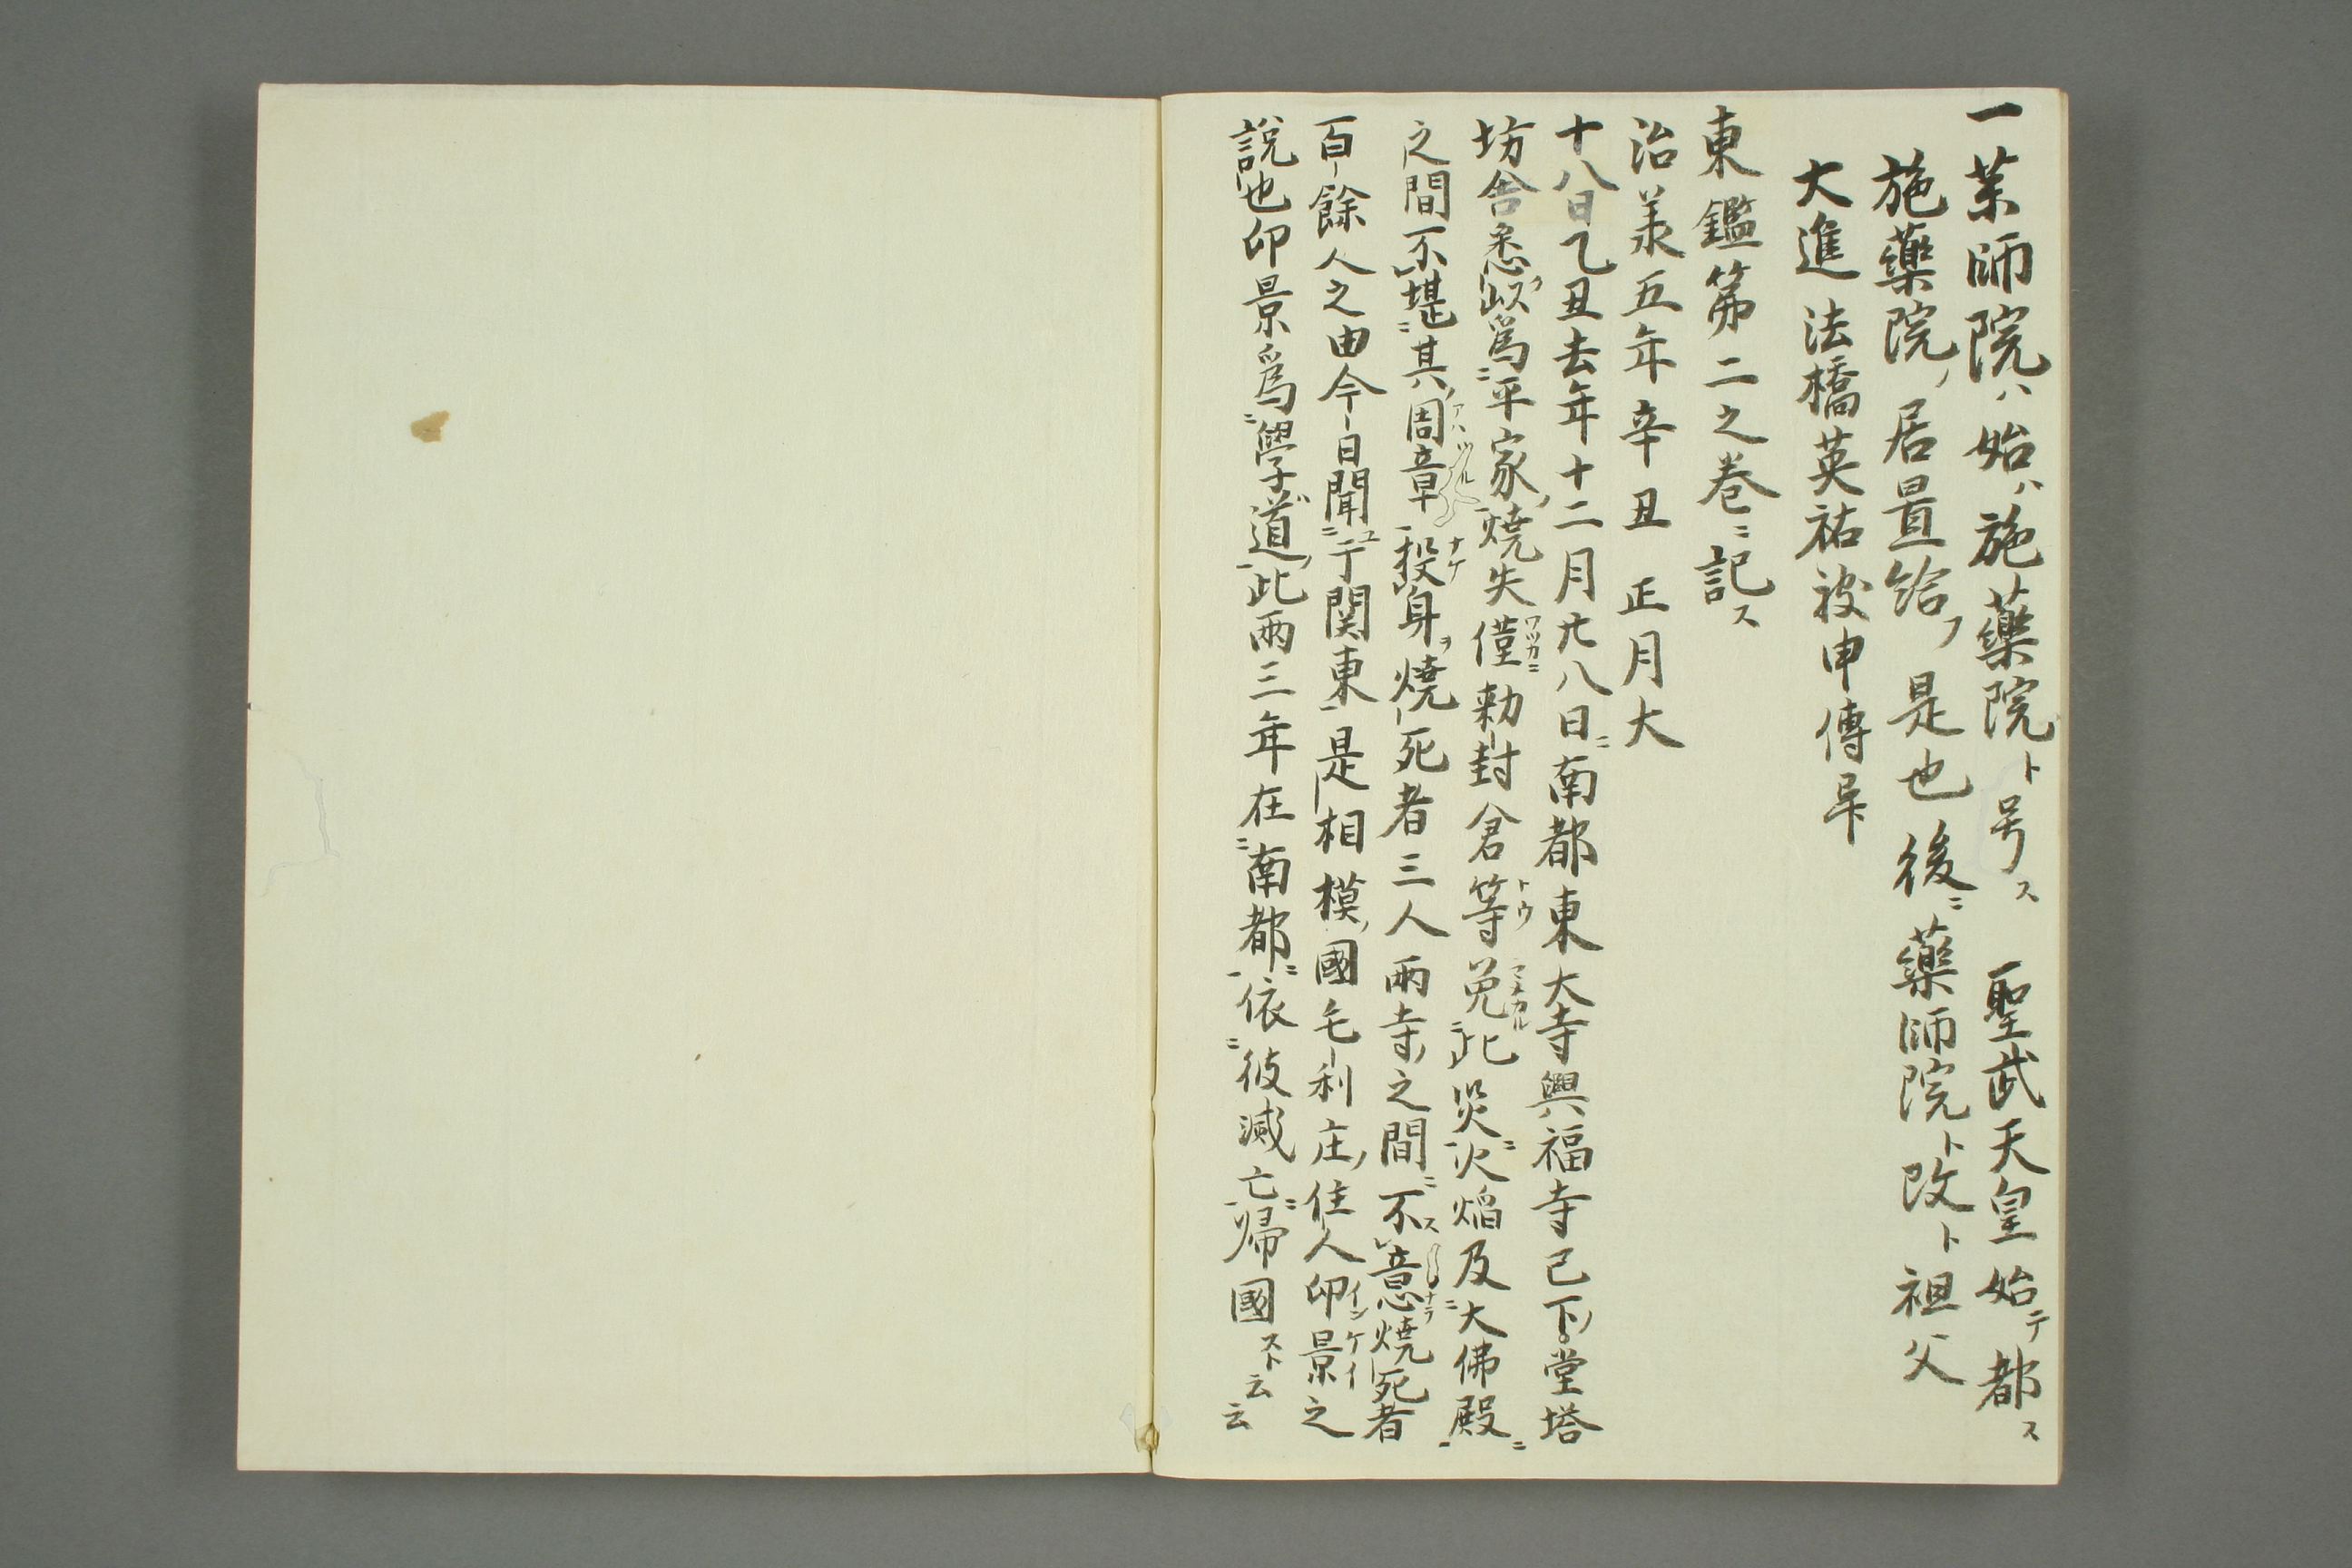 一 茶師院ハ始ハ施藥院ト号ス 聖武天皇始テ都ス
施藥院ノ居置給フ是也後ニ藥師院ト改ト祖父
大進法橋英祐被申傳
東鑑第二之巻ニ記ス
治羕五年辛丑 正月大
十八日乙丑去年十二月廿八日ニ南都東大寺興福寺已下ノ堂塔
坊舎悉以為ニ平家ノ焼失僅ワツカニ勅封倉等トウ免マヌカル此災ニ火焔及大佛殿ニ
之間不堪ニ其ノ周章アハツル投ナケ身ヲ焼死者三人両寺ノ之間ニ不ス意ナラ焼死者
百餘人之由今日聞ユ于関東是相模ノ國毛利庄ノ住人印景インケイ之
説也印景為ニ學道ノ此両三年在ニ南都ニ依ニ彼滅亡ニ帰國スト云云